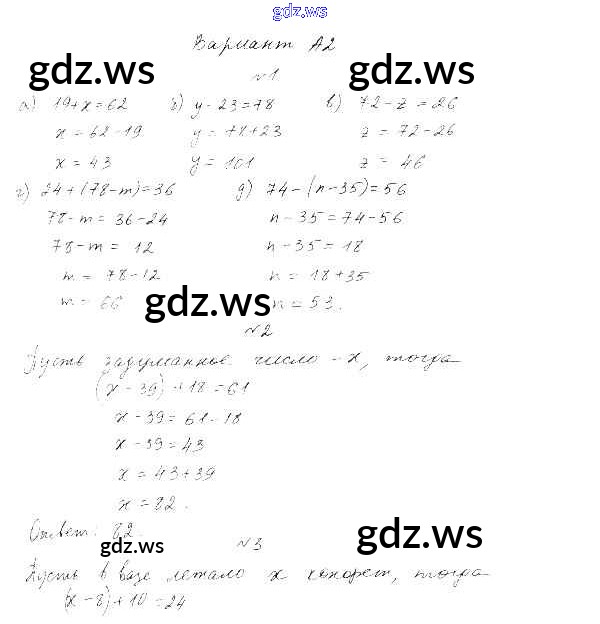 gdz.ws
Вариант А2
gdz.ws gdz.ws
№1
а) 19+x=62 б) y-23=78 в) 72-z=26
x=62-19 y=78+23 z=72-26
x=43 y=101 z=46
г) 24+(78-m)=36 д) 74-(n-35)=56
78-m=36-24 n-35=74-56
78-m=12 n-35=18
m=78-12 n=18+35
m=66 gdz.ws n=53.
№2
Пусть задуманное число - x, тогда
(x-39)+18=61
x-39=61-18
x-39=43
x=43+39
x=82.
Ответ: 82.
gdz.ws №3 gdz.ws
Пусть в вазе лежало x конфет, тогда
(x-8)+10=24